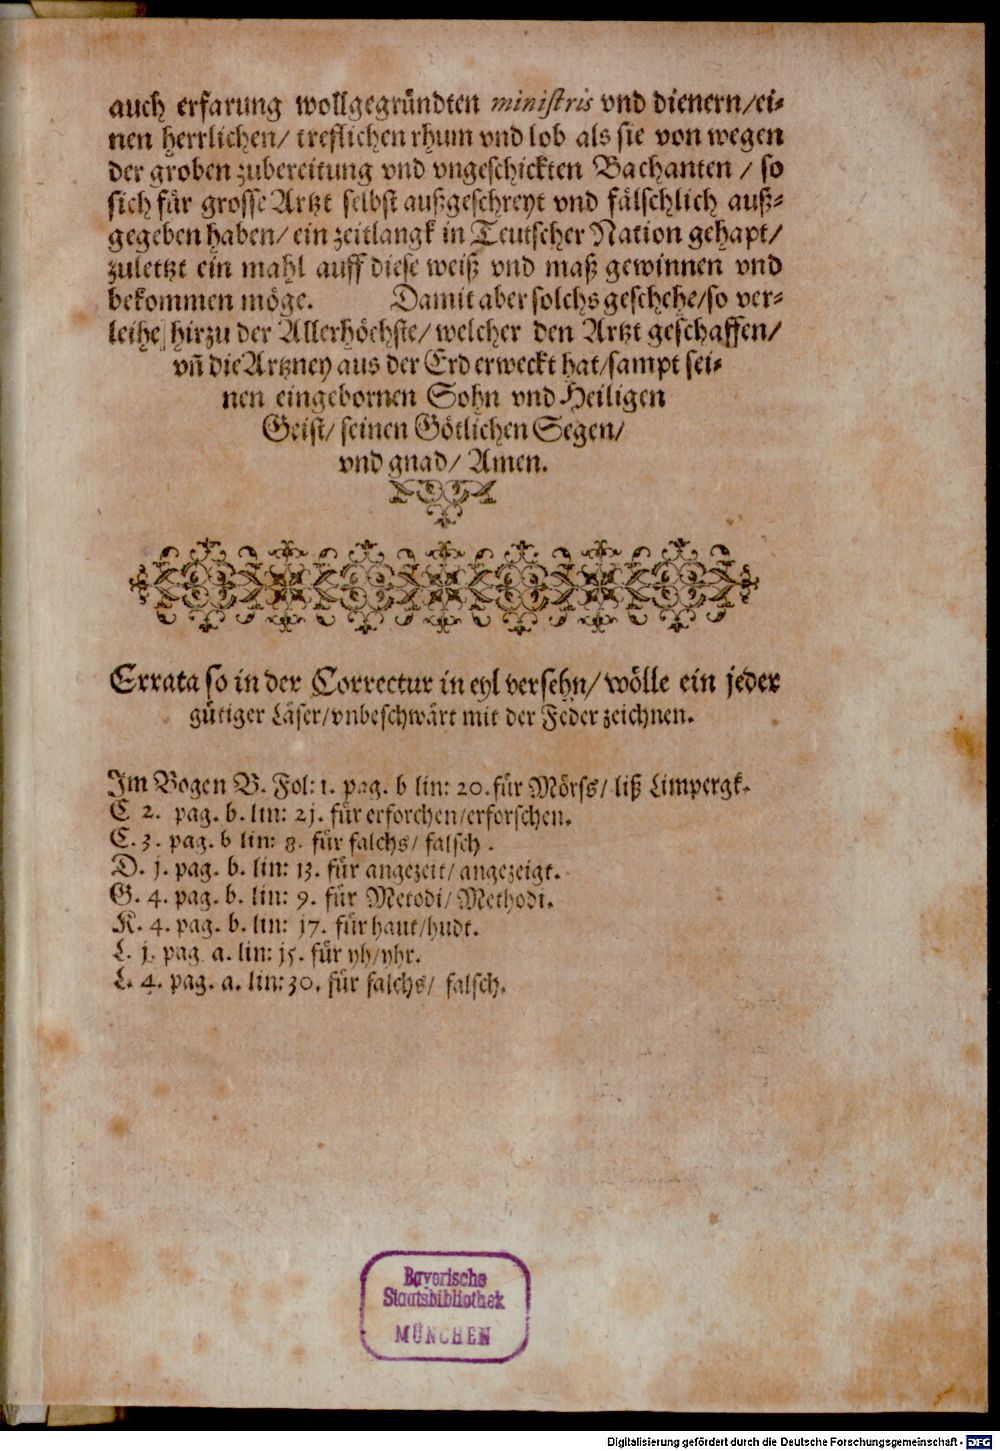 auch erfarung wollgegründten ministris vnd dienern/ei-
nen herrlichen/ trefflichen rhum vnd lob als sie von wegen
der groben zubereitung vnd vngeschickten Bachanten / so
sich für grosse Artzt selbst außgeschreyt vnd fälschlich auß-
gegeben haben/ ein zeitlangk in Teutscher Nation gehapt/
zuletzt ein mahl auff diese weiß vnd maß gewinnen vnd
bekommen möge. Damit aber solchs geschehe/so ver-
leihe hirzu der Allerhöchste/ welcher den Artzt geschaffen/
vñ die Artzney aus der Erd erweckt hat/sampt sei-
nen eingebornen Sohn vnd Heiligen
Geist/ seinen Götlichen Segen/
vnd gnad/ Amen.
Errata so in der Correctur in eyl versehn/ wölle ein jeder
gütiger Läser/vnbeschwärt mit der Feder zeichnen.
Im Bogen B. Fol: 1. pag. b lin: 20. für Mörss/ liß Limpergk.
C 2. pag. b. lin: 21. für erforchen/erforschen.
C. 3. pag. b lin: 8. für falchs/ falsch.
D. j. pag. b. lin: 13. für angezeit/ angezeigt.
G. 4. pag. b. lin: 9. für Metodi/ Methodi.
K. 4. pag. b. lin: 17. für haut/hudt.
L. j. pag. a. lin: 15. für yh/yhr.
L. 4. pag. a. lin: 30. für falchs/ falsch.
Bayerische
Staatsbibliothek
MÜNCHEN
Digitalisierung gefördert durch die Deutsche Forschungsgemeinschaft - DFG